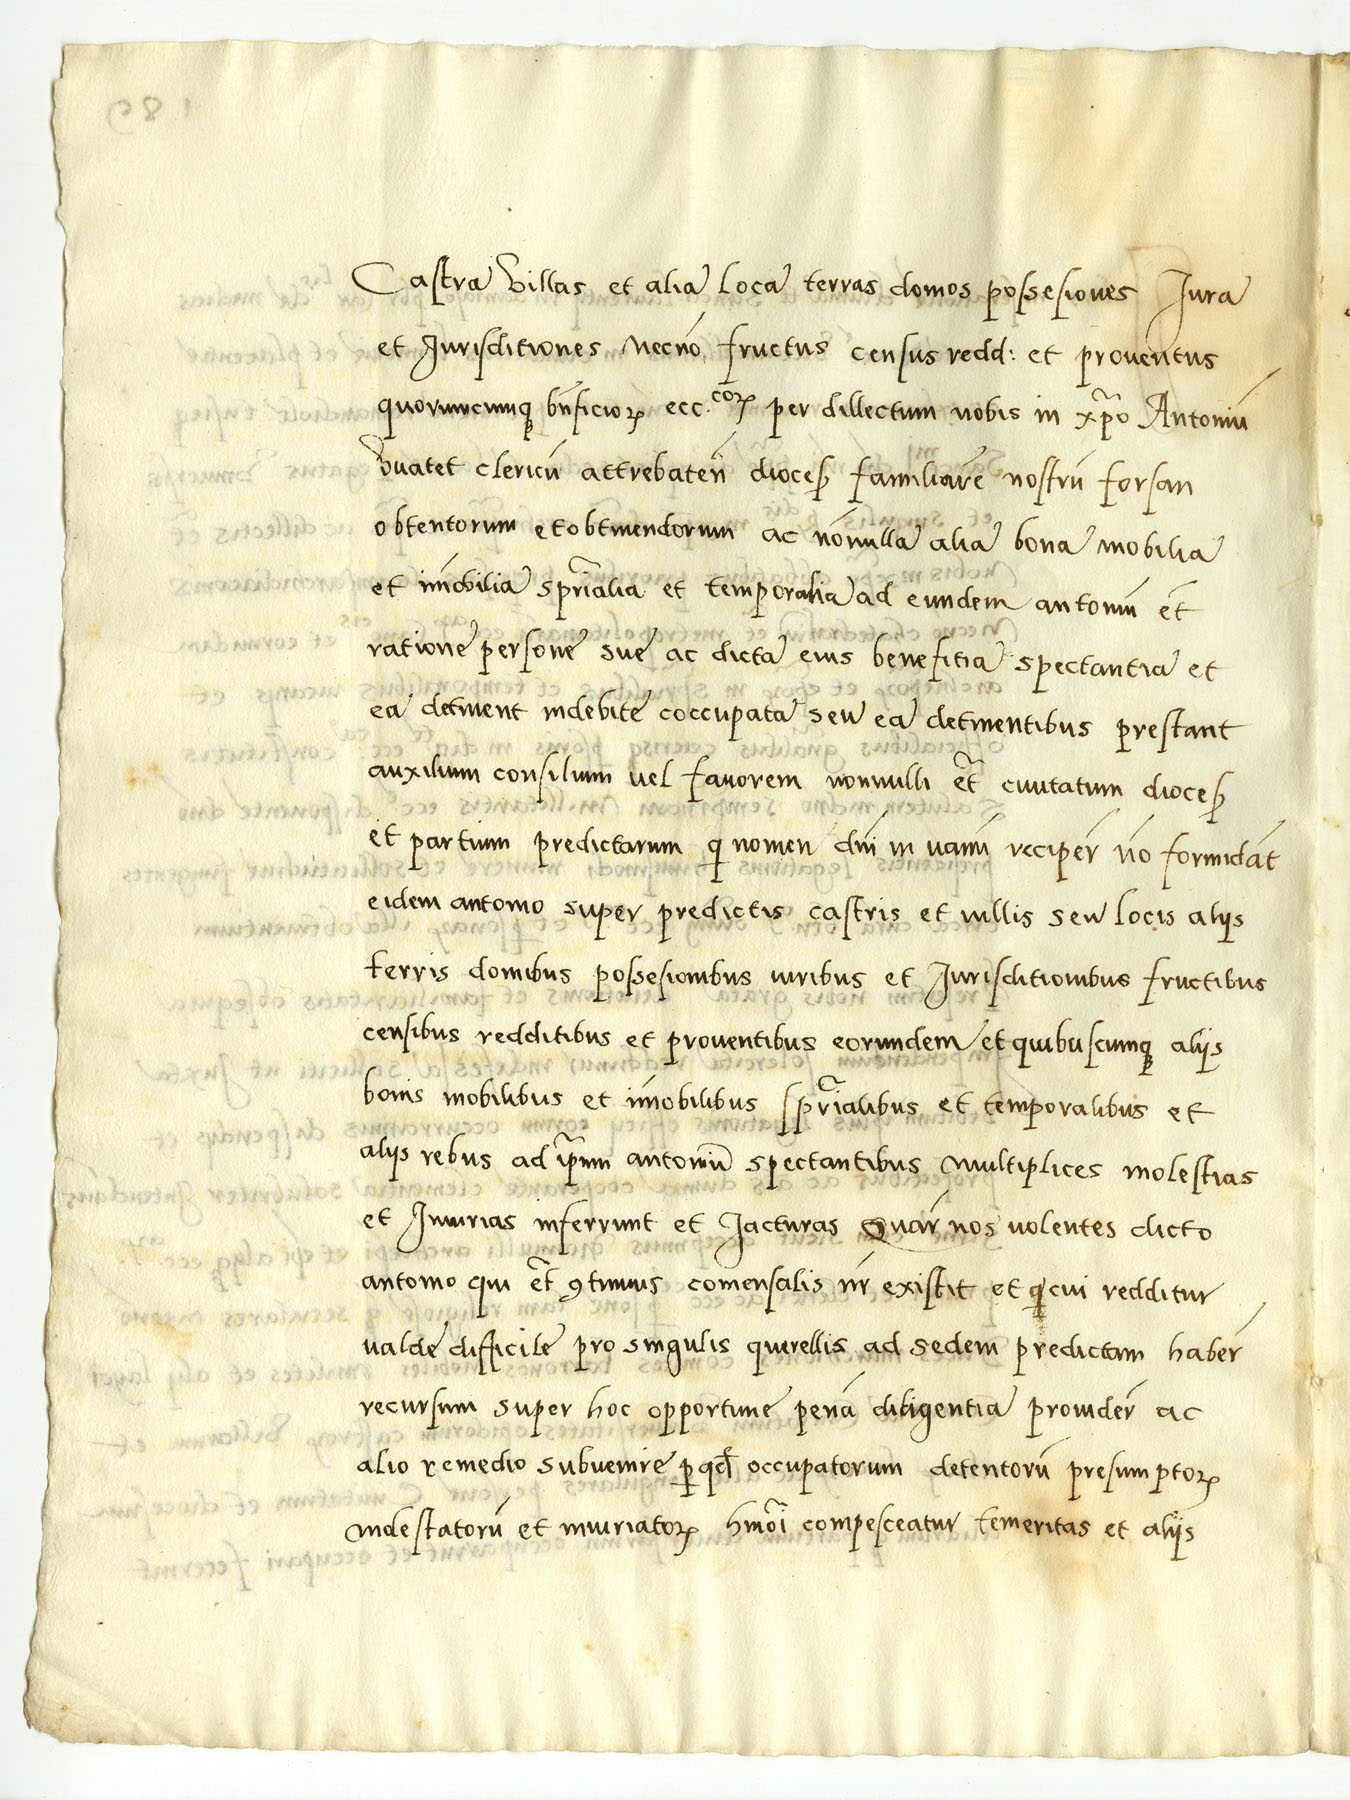 Castra Villas et alia loca terras domos possesiones Jura
et Jurisditiones necnō fructus census redd: et proventus
quorumcumqꝫ bn̄ficioꝝ ecc.coꝝ per dillectum nobis in xp̄o Antoniū
clericū attrebateñ dioceſ familiarē nostrū forsan
obtentorum et obtinendorum ac nōnulla alia bona mobilia
et im̄obilia spr̄ialia et temporalia ad eundem antoniū et̄
ratione persone sue ac dicta eius benefitia spectantia et
ea detinent indebite coccupata seu ea detinentibus prestant
auxilium consilium vel favorem nonnulli et̄ civitatum dioceſ
et partium predictarum qͥ nomen dn̄i in vanū reciper̄ nō formidāt
eidem antonio super predictis castris et villis seu locis alijs
terris domibus possesionibus iuribus et Jurisditionibus fructibus
censibus redditibus et proventibus eorundem et quibuscumqꝫ alijs
bonis mobilibus et im̄obilibus spr̄ialibus et temporalibus et
alijs rebus ad ip̄um antoniū spectantibus multiplices molestias
et Iniurias inferrunt et Jacturas Quar̄ nos volentes dicto
antonio qui et̄ ꝯtinuus comensalis nr̄ existit et qͥ cui redditur
valde difficile pro singulis querellis ad sedem predictam haber̄
recursum super hoc opportune penā diligentia provider̄ ac
alio remedio subvenire ꝑ qđ occupatorum detentorū presumptoꝝ
molestatorū et iniuriatoꝝ hmōi compesceatur temeritas et alijs